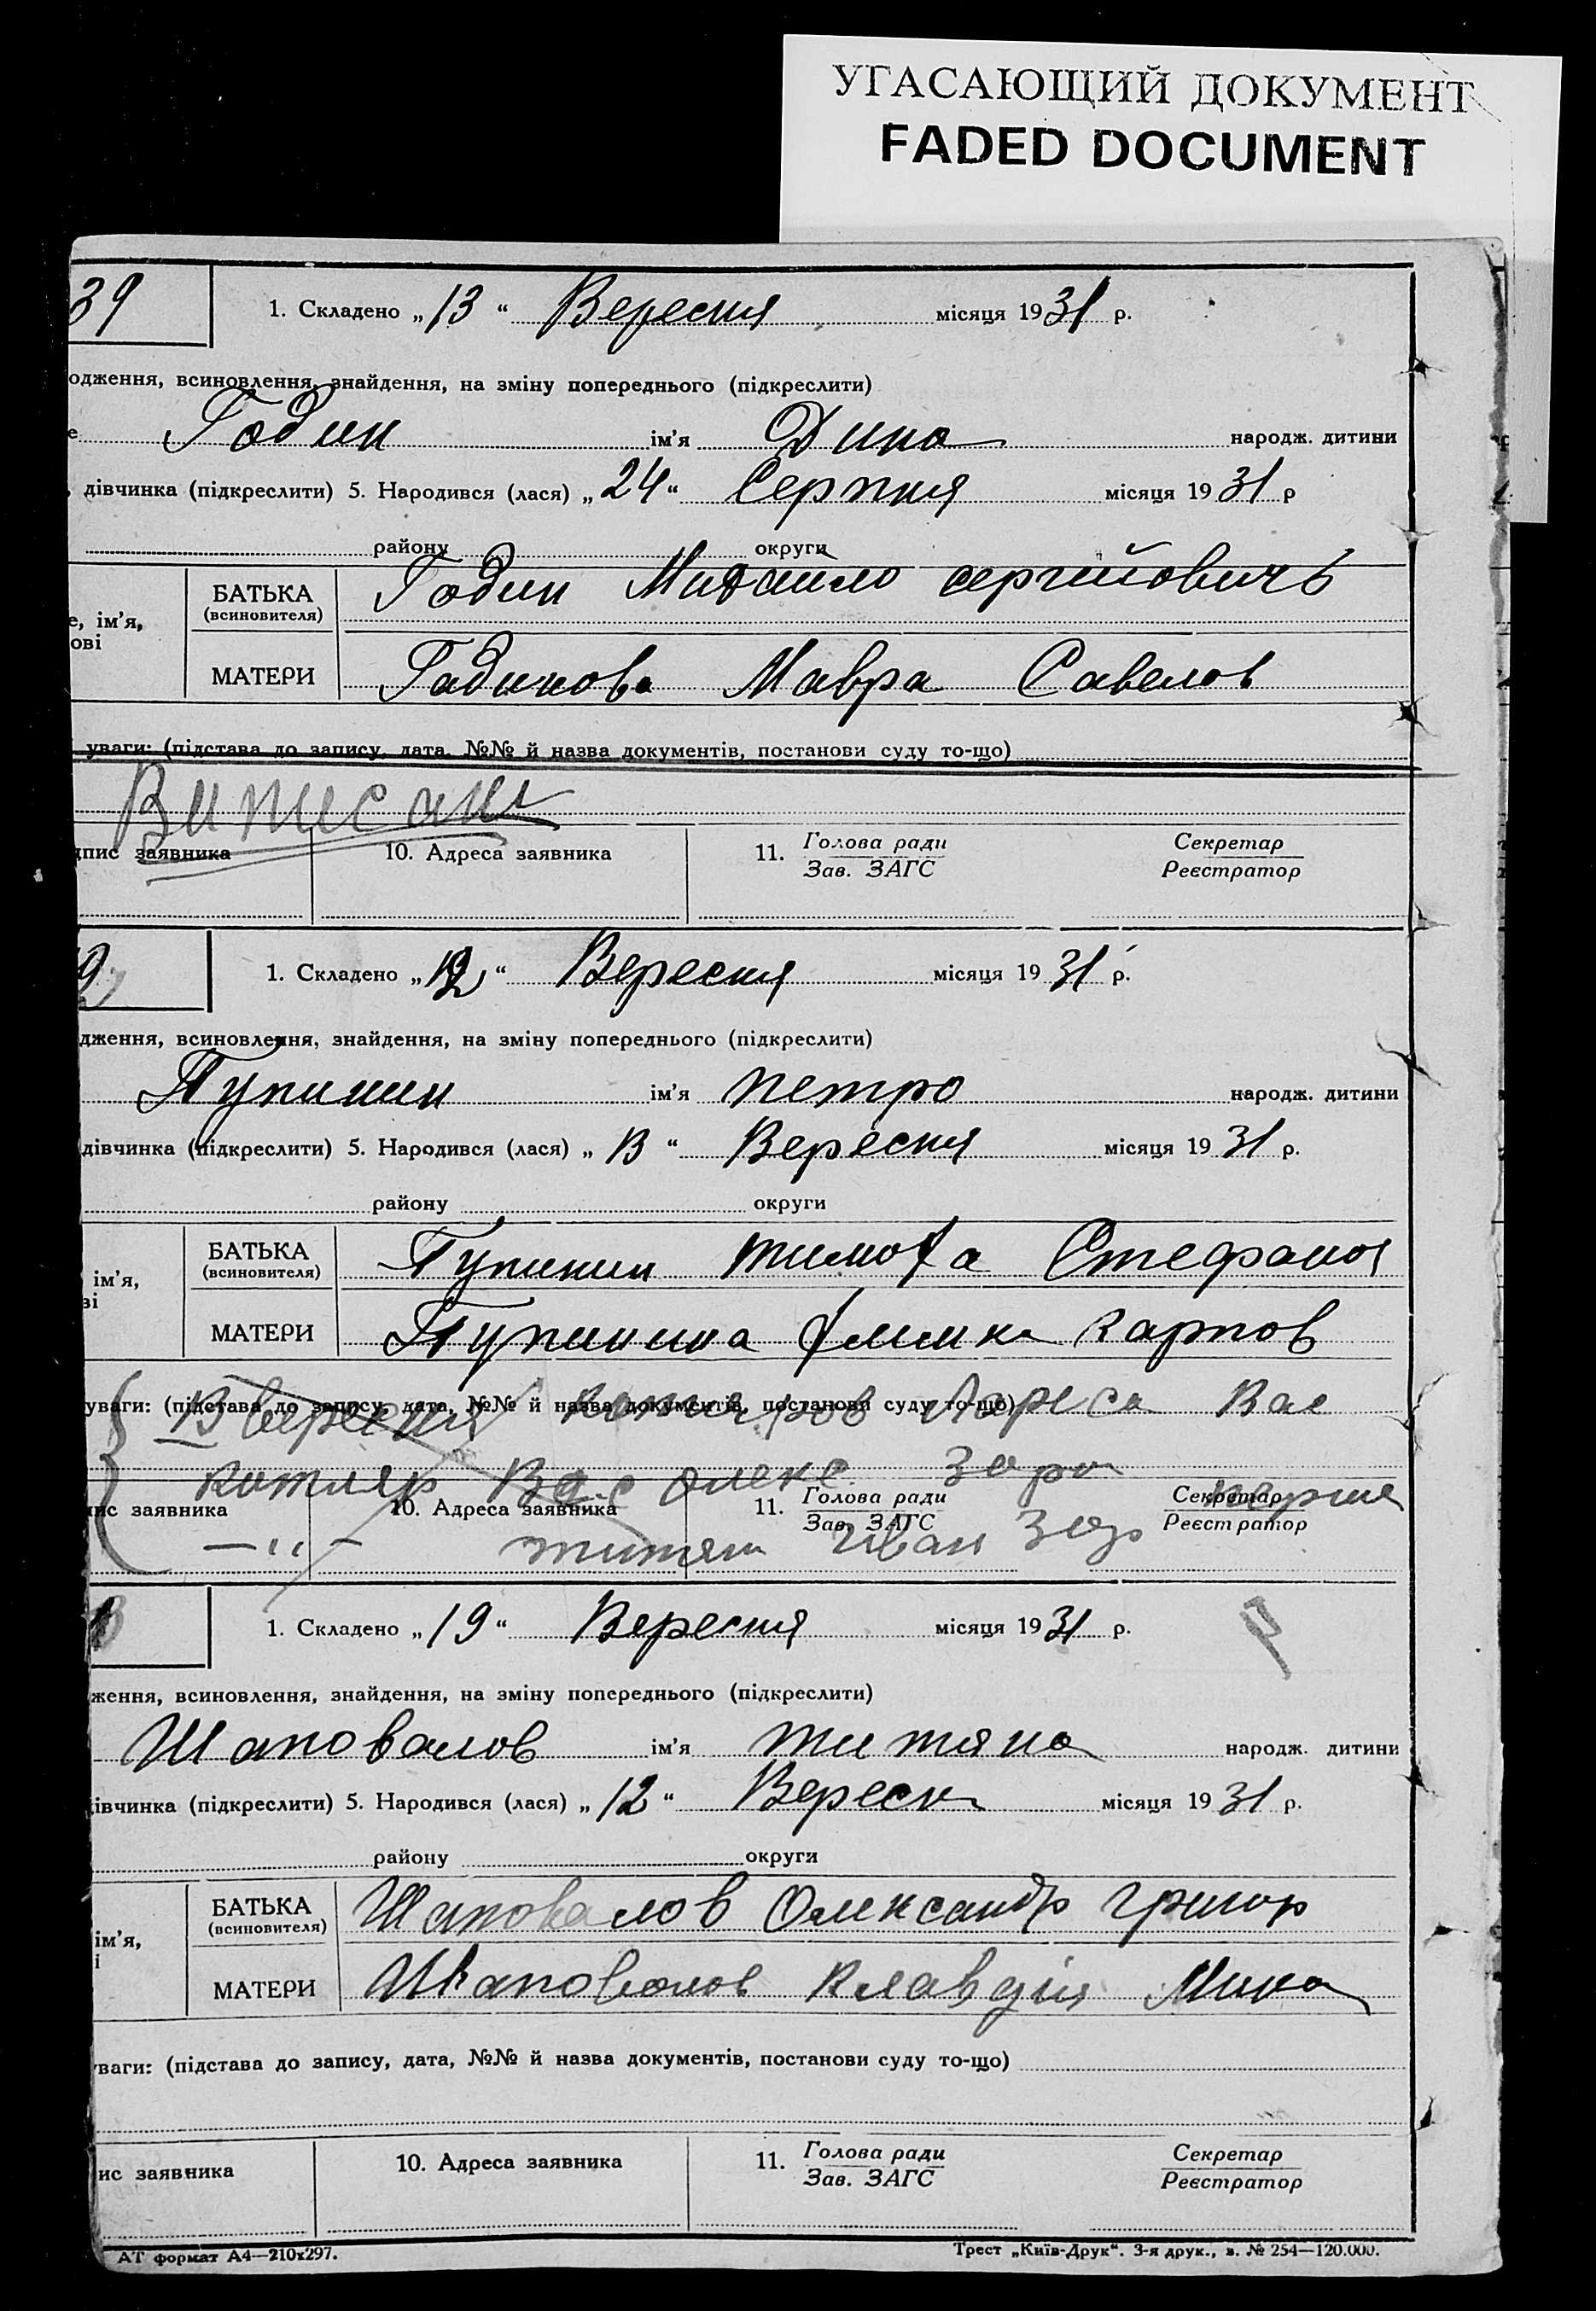 УГАСАЮЩИЙ ДОКУМЕНТ
FADED DOCUMENT
39
1. Складено „13“ Вересня місяця 1931 р.
одження, всиновлення, знайдення, на зміну попереднього (підкреслити)
е Годин ім’я Дина народж. дитини
, дівчинка (підкреслити) 5. Народився (лася) „24“ Серпня місяця 1931 р
району округи
е, ім’я,
ові
БАТЬКА
(всиновителя)
Годин Михайло сергийовичь
МАТЕРИ
Годинова Мавра Савелов
уваги: (підстава до запису, дата, №№ й назва документів, постанови суду то-що)
Виписани
дпис заявника
10. Адреса заявника
11. Голова ради
Зав. ЗАГС
Секретар
Реєстратор
1. Складено „12“ Вересня місяця 1931 р.
дження, всиновлення, знайдення, на зміну попереднього (підкреслити)
Пупинин ім’я петро народж. дитини
дівчинка (підкреслити) 5. Народився (лася) „ “ Вересня місяця 1931 р.
району округи
ім’я,
ві
БАТЬКА
(всиновителя)
Пупинин Стефанов
МАТЕРИ
Пупинина карпов
уваги: (підстава до запису, дата, №№ й назва документів, постанови суду то-що)
вересня Лареса Вас
котляр Вас олекс Зара
пис заявника
10. Адреса заявника
11. Голова ради
Зав. ЗАГС
Секретар
Реєстратор
—„— Иван
1. Складено „19“ Вересня місяця 1931 р.
ження, всиновлення, знайдення, на зміну попереднього (підкреслити)
Шаповалов ім’я титяна народж. дитини
івчинка (підкреслити) 5. Народився (лася) „12“ Вересн місяця 1931 р.
району округи
ім’я,
і
БАТЬКА
(всиновителя)
Шаповалов Олександр григор
МАТЕРИ
Шаповалов Клавдія Мика
уваги: (підстава до запису, дата, №№ й назва документів, постанови суду то-що)
ис заявника
10. Адреса заявника
11. Голова ради
Зав. ЗАГС
Секретар
Реєстратор
АТ формат А4—210x297.
Трест „Київ-Друк“. 3-я друк., в. № 254—120.000.